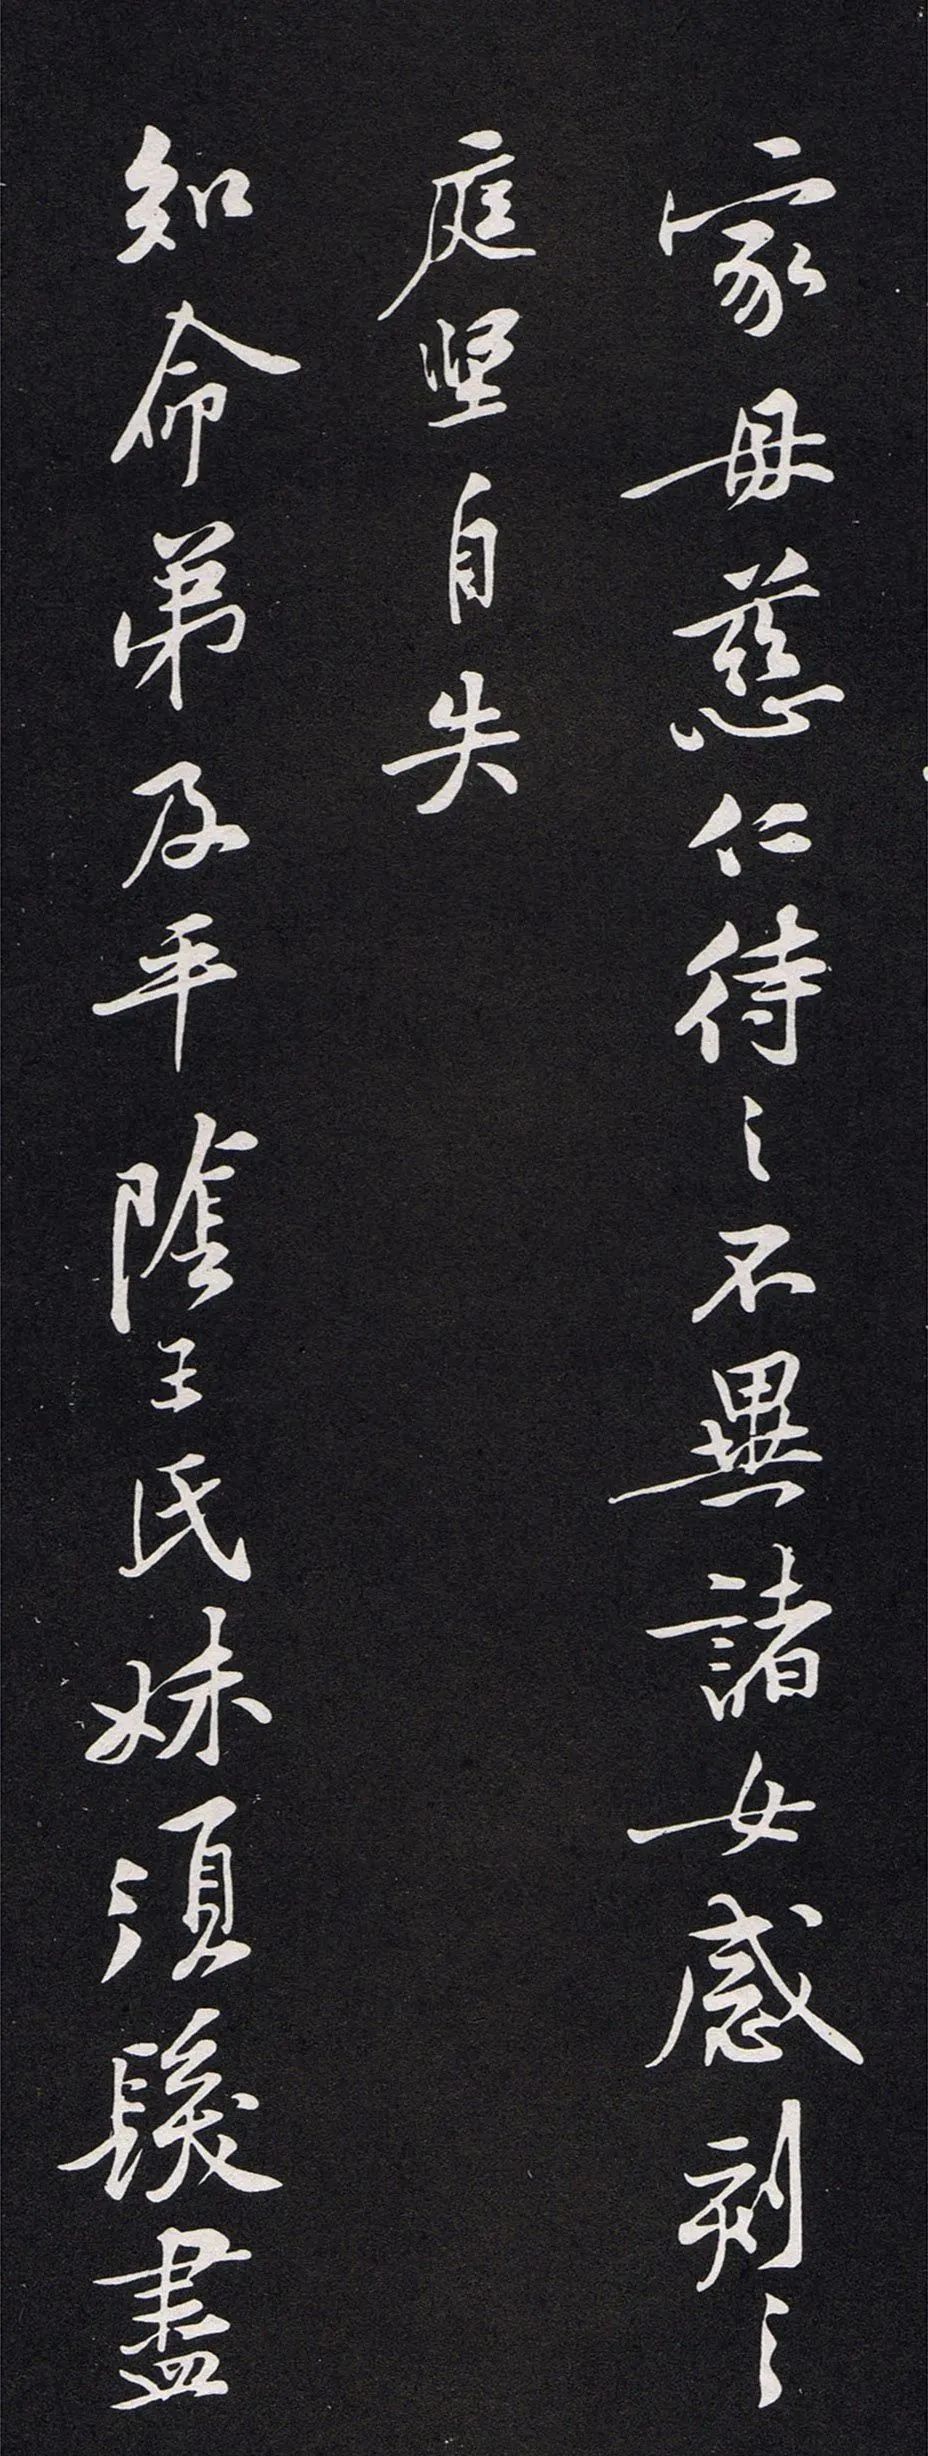 家母慈仁待之不異諸女感刻之
庭坚自失
知命弟及平陰王氏妹須髮盡